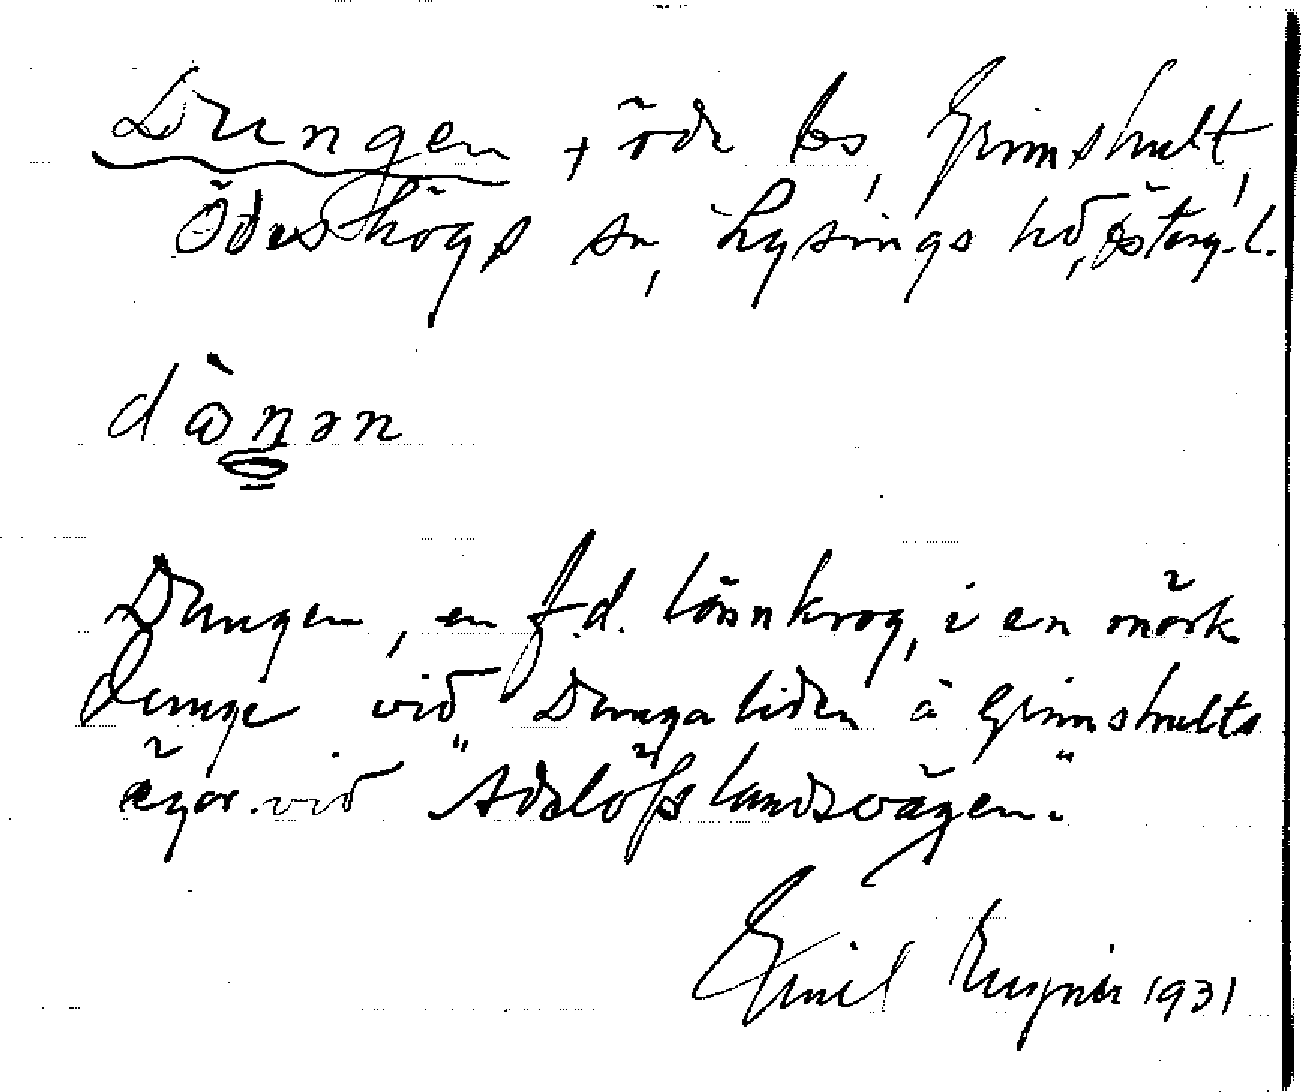 Dungen + öde ls, Grimshult,
Ödeshögs sn, Lysings hd, Östergl.
Dungen, en f.d. lönnkrog, i en mörk
dunge vid Dungaliden å Grimshults
ägor vid "Adelöfs landsvägen."
Emil 1931